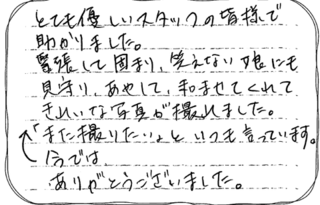 とても優しいスタッフの皆様で
助かりました。
緊張して固まり、笑えない娘にも
見守り、あやして、和ませてくれて
きれいな写真が撮れました。
「また撮りたい」といつも言っています。
今では
ありがとうございました。